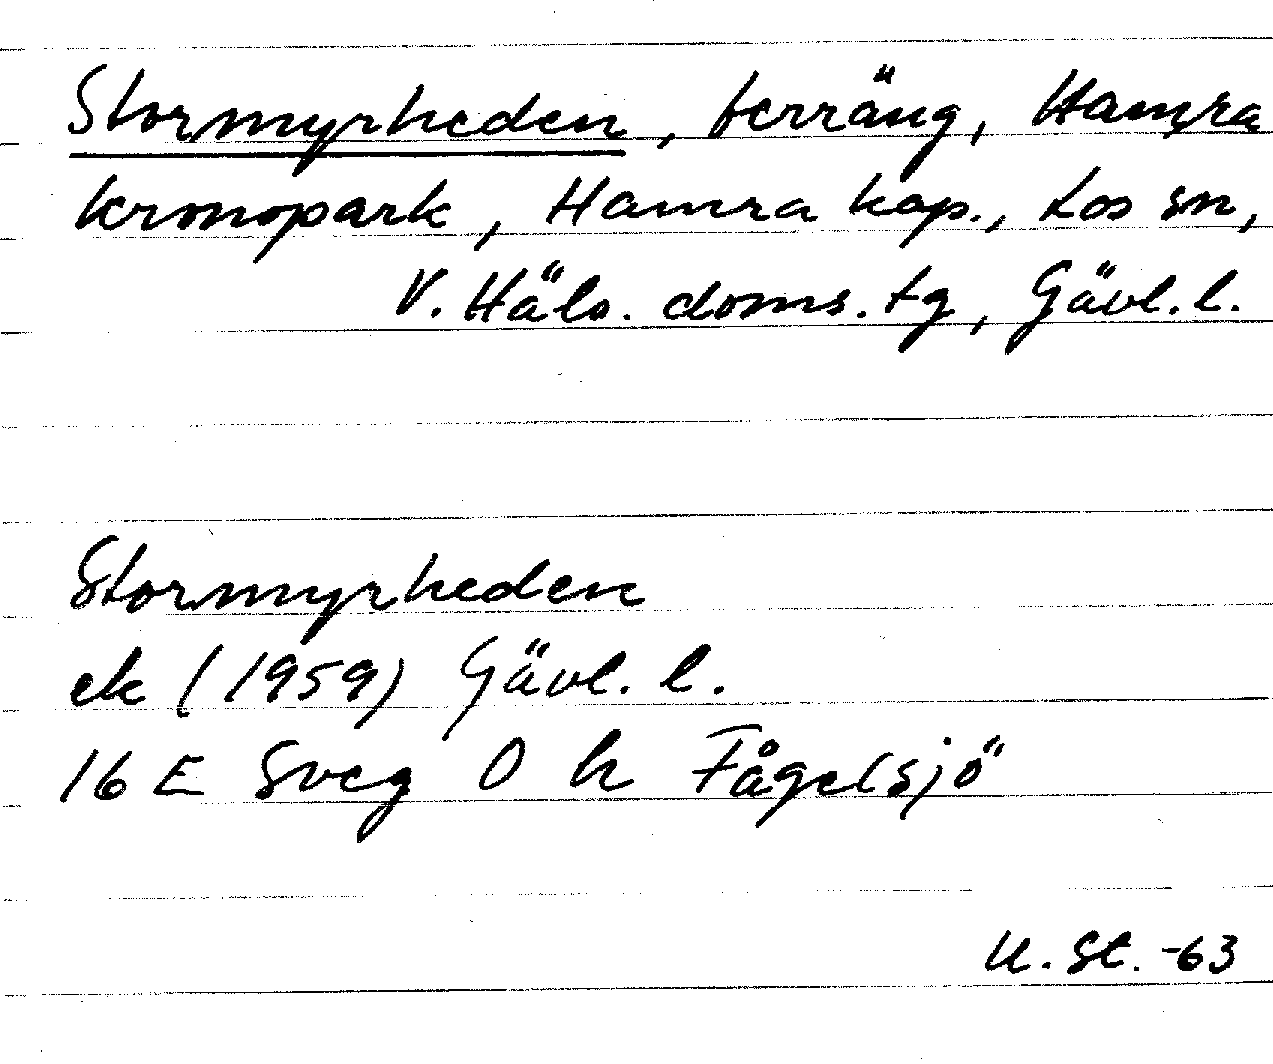 Stormyrheden, terräng, Hamra
kronopark, Hamra kap., Los sn,
V. Häls. doms. tg, Gävl. l.
Stormyrheden
ek (1959) Gävl. l.
16 E Sveg O h Fågelsjö
U. St. -63